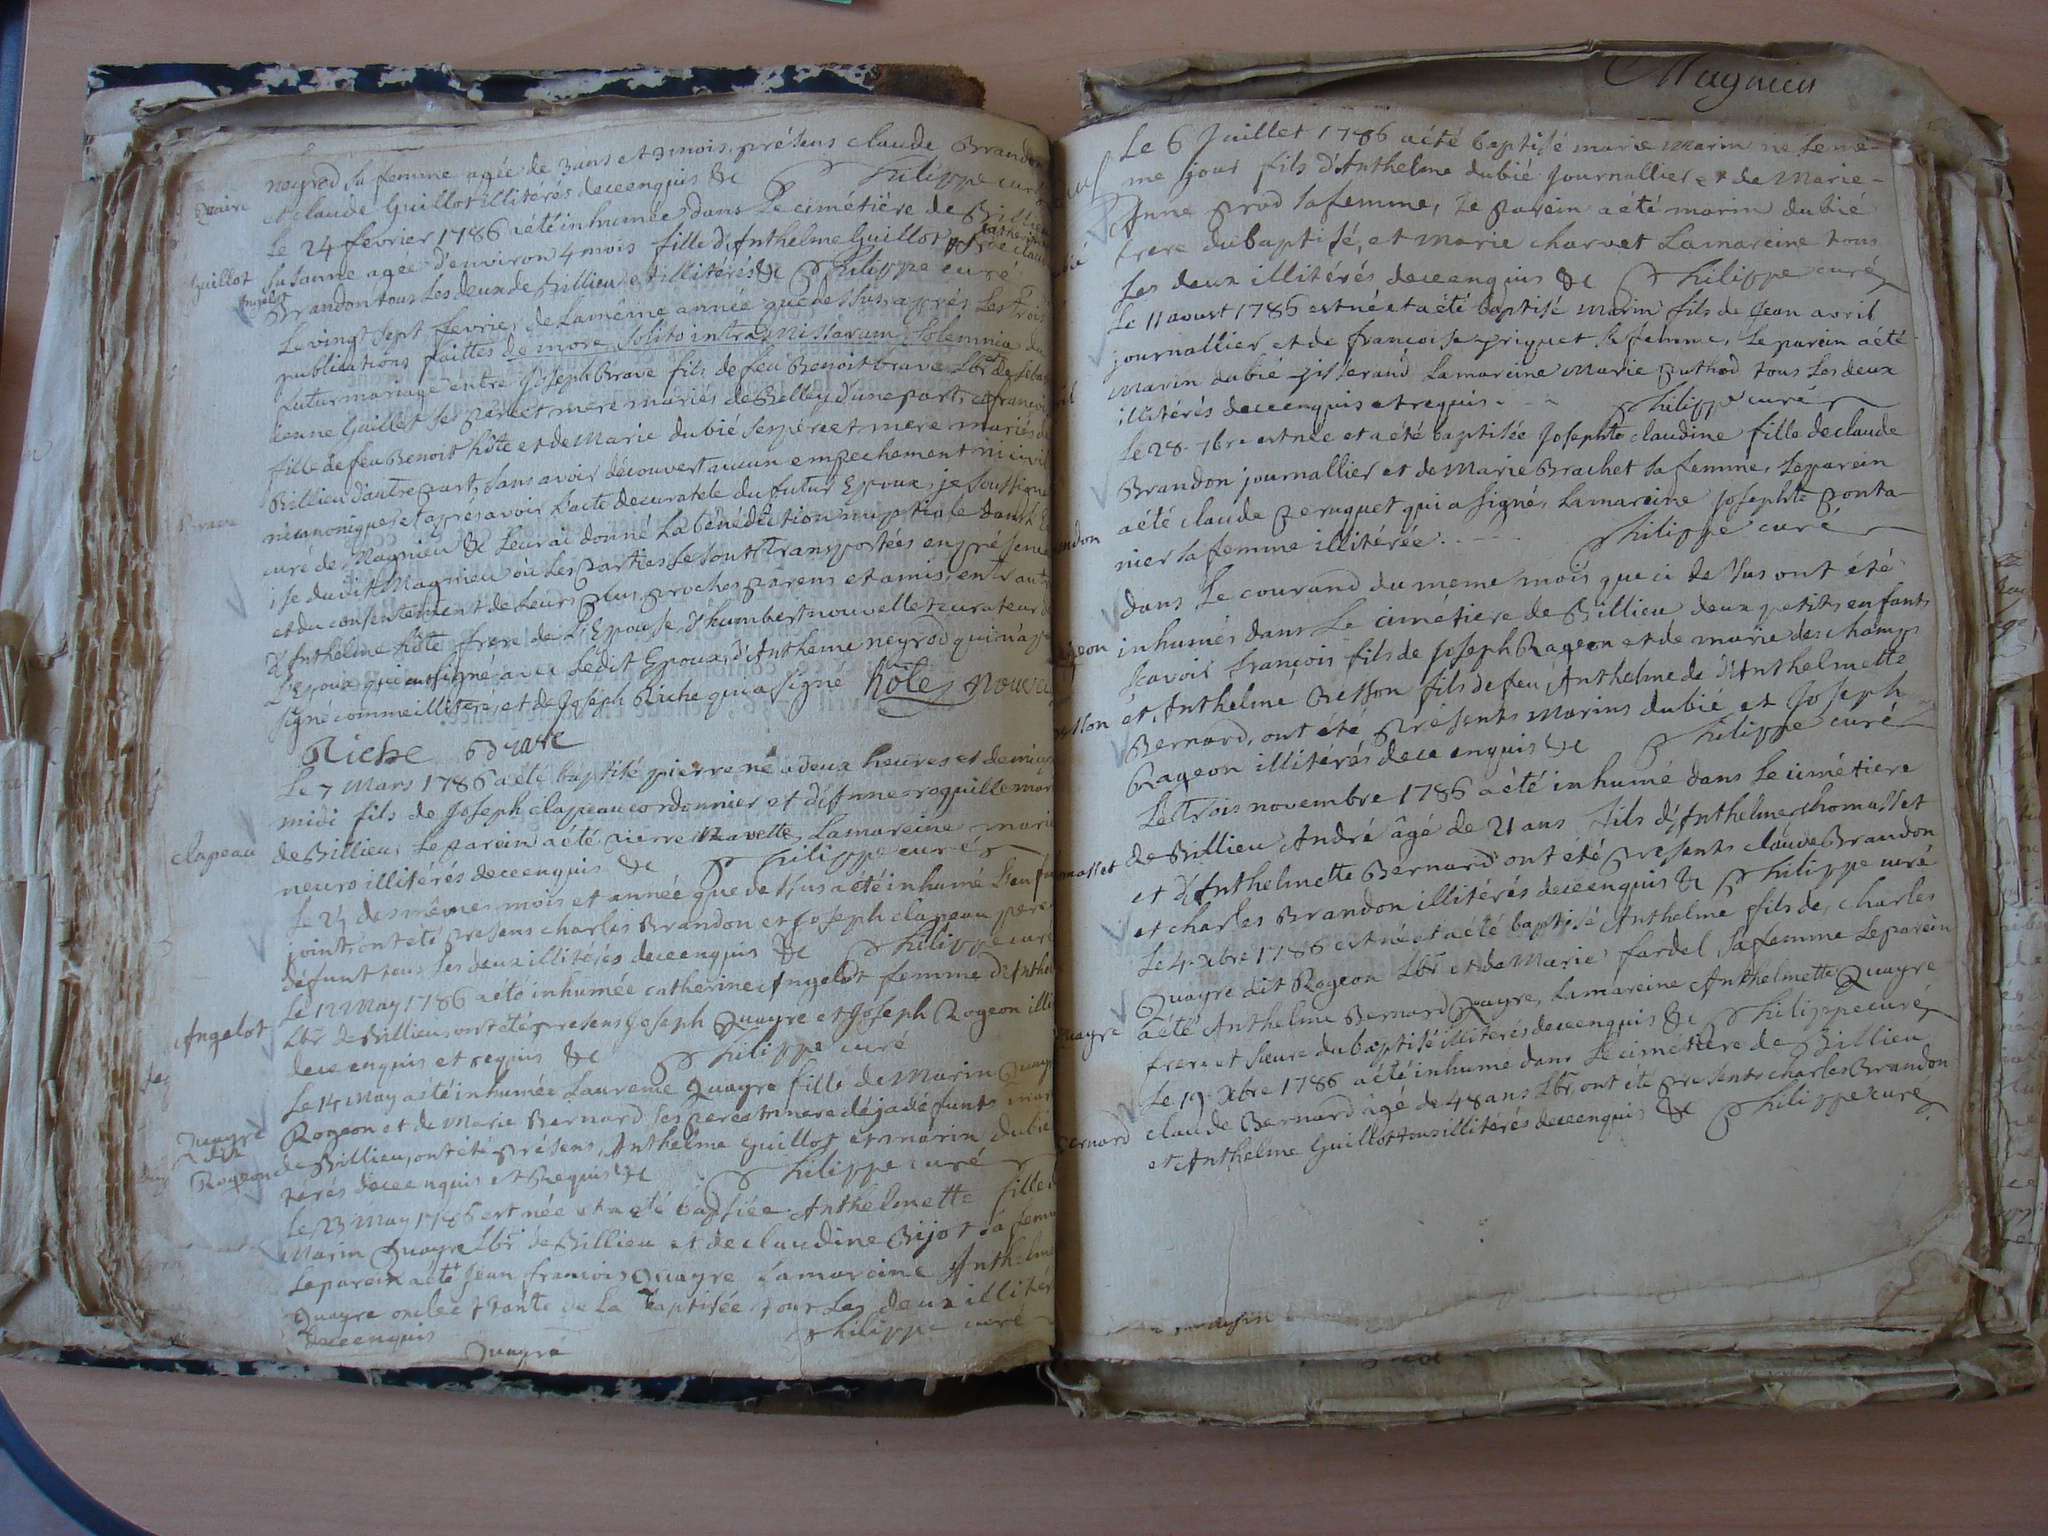 neyrod sa femme agée de 3 ans et 9 mois, présens claude Brandon
et claude Guillot illitérés de ce enquis &c Philippe curé
Quaire
Le 24 fevrier 1786 a été inhumée dans Le cimétiére de Billieu
catherine
Guillot
Susanne agée d'environ 4 mois fille d'Anthelme Guillot et de claud
Angelot
Brandon tous Les deux de Billieu et illitérés &c Philippe curé
Le vingt sept fevrier de La même année que dessus apprés Les trois
publications faittes de more solito intra Missarum solemnia du
futur mariage entre Joseph Brave fils de feu Benoit brave Lbr et de seba
tienne Guillet ses pere et mere mariés de Belley d'une part, et francoi
fille de feu Benoit hôte et de Marie dubié ses pere et mere mariés de
Billieu d'autre part, sans avoir découvert aucun empechement ni civil
Brave
ni canonique, et apres avoir L'acte de curatele du futur Epoux, je soussigné
curé de Magnieu &c Leur ai donné La bénédiction nuptiale dans L'E
ise dudit Magnieu où Les parties se sont transportées en présence
et du consentement de Leurs plus proches parens et amis, entr'aut
d'Anthelme hôte frere de L'Epouse, d'humbert nouvellet curateur d
L'Epoux qui ont signé avec Ledit Epoux, d'Anthelme neyrod qui n'a p
signé comme illitéré, et de Joseph Riche qui a signé hôte Nouvel
Riche Brave
Le 7 Mars 1786 a été baptisé pierre né a deux heures et demi ap
midi fils de Joseph clapeau cordonnier et d'Anne roquille mar
clapeau
de Billieu, Le parein a été pierre Navette, La mareine marie
neuro illitérés de ce enquis &c Philippe curé
Le 25 des mêmes mois et année que dessus a été inhumé L'enfa
joint, ont été presens charles Brandon et Joseph clapeau pere
défunt tous Les deux illitérés de ce enquis &c Philippe curé
Le 12 May 1786 a été inhumée catherine Angelot femme d'Anthel
Angelot
Lbr de Billieu, ont été presens Joseph Quayre et Joseph Rogeon illi
de ce enquis et requis &c Philippe curé
Le 14 May a été inhumée Laurence Quayre fille de Marin Quayr
Quayre
dit
Rogeon et de Marie Bernard ses pere et mere déja défunts mari
Rogeon
de Billieu, ont été présens, Anthelme Guillot et marin dubié
térés de ce enquis et Requis &c Philippe curé
Le 23 May 1786 est née et a été baptisée Anthelmette fille d
Marin Quayre Lbr de Billieu et de claudine Bijot sa femm
Le parein a été Jean françois Quayre La mareine Anthelm
Quayre oncle et tante de La baptisée tous Les deux illitér
de ce enquis Philippe curé
Quayre
Magnieu
Le 6 Juillet 1786 a été baptisé marie marin né Le mê-
me jour fils d'Anthelme dubié Journallier et de Marie-
Anne prod sa femme, Le parein a été marin dubié
frere du baptisé, et Marie charvet La mareine tous
Les deux illitérés de ce enquis &c Philippe curé
Le 11 aoust 1786 est né et a été baptisé marin fils de Jean avril
journallier et de francoise priquet sa femme, Le parein a été
Marin dubié tisserand La mareine Marie Puthod tous Les deux
illitérés de ce enquis et requis Philippe curé
Le 28 7bre est née et a été baptisée Josephte claudine fille de claude
Brandon journallier et de Marie Brachet sa femme, Le parein
a été claude peruquet qui a signé, La mareine Josephte ponta-
ndon
nier sa femme illitérée Philippe curé
dans Le courand du meme mois que ci dessus ont été
geon
inhumés dans Le cimétiere de Billieu deux petits enfants
scavoir françois fils de Joseph Rageon et de marie deschamps
esson
et Anthelme Besson fils de feu Anthelme de d'Anthelmette
Bernard, ont été présents Marins dubié et Joseph
Rageon illitérés de ce enquis &c Philippe curé
Le trois novembre 1786 a été inhumé dans Le cimétiere
de Billieu André âgé de 21 ans fils d'Anthelme thomasset
masset
et d'Anthelmette Bernard ont été présents claude Brandon
et charles Brandon illitérés de ce enquis &c Philippe curé
Le 4 xbre 1786 est né et a été baptisé Anthelme fils de charles
Quayre dit Rogeon Lbr et de Marie fardel sa femme Le parein
Quayre
a été Anthelme Bernard Quayre, La mareine Anthelmette Quayre
frere et sœure du baptisé illitérés de ce enquis &c Philippe curé
Le 19 xbre 1786 a été inhumé dans Le cimetiere de Billieu
Bernard
claude Bernard âgé de 48 ans Lbr ont été presents charles Brandon
et Anthelme Guillot tous illitérés de ce enquis &c Philippe curé